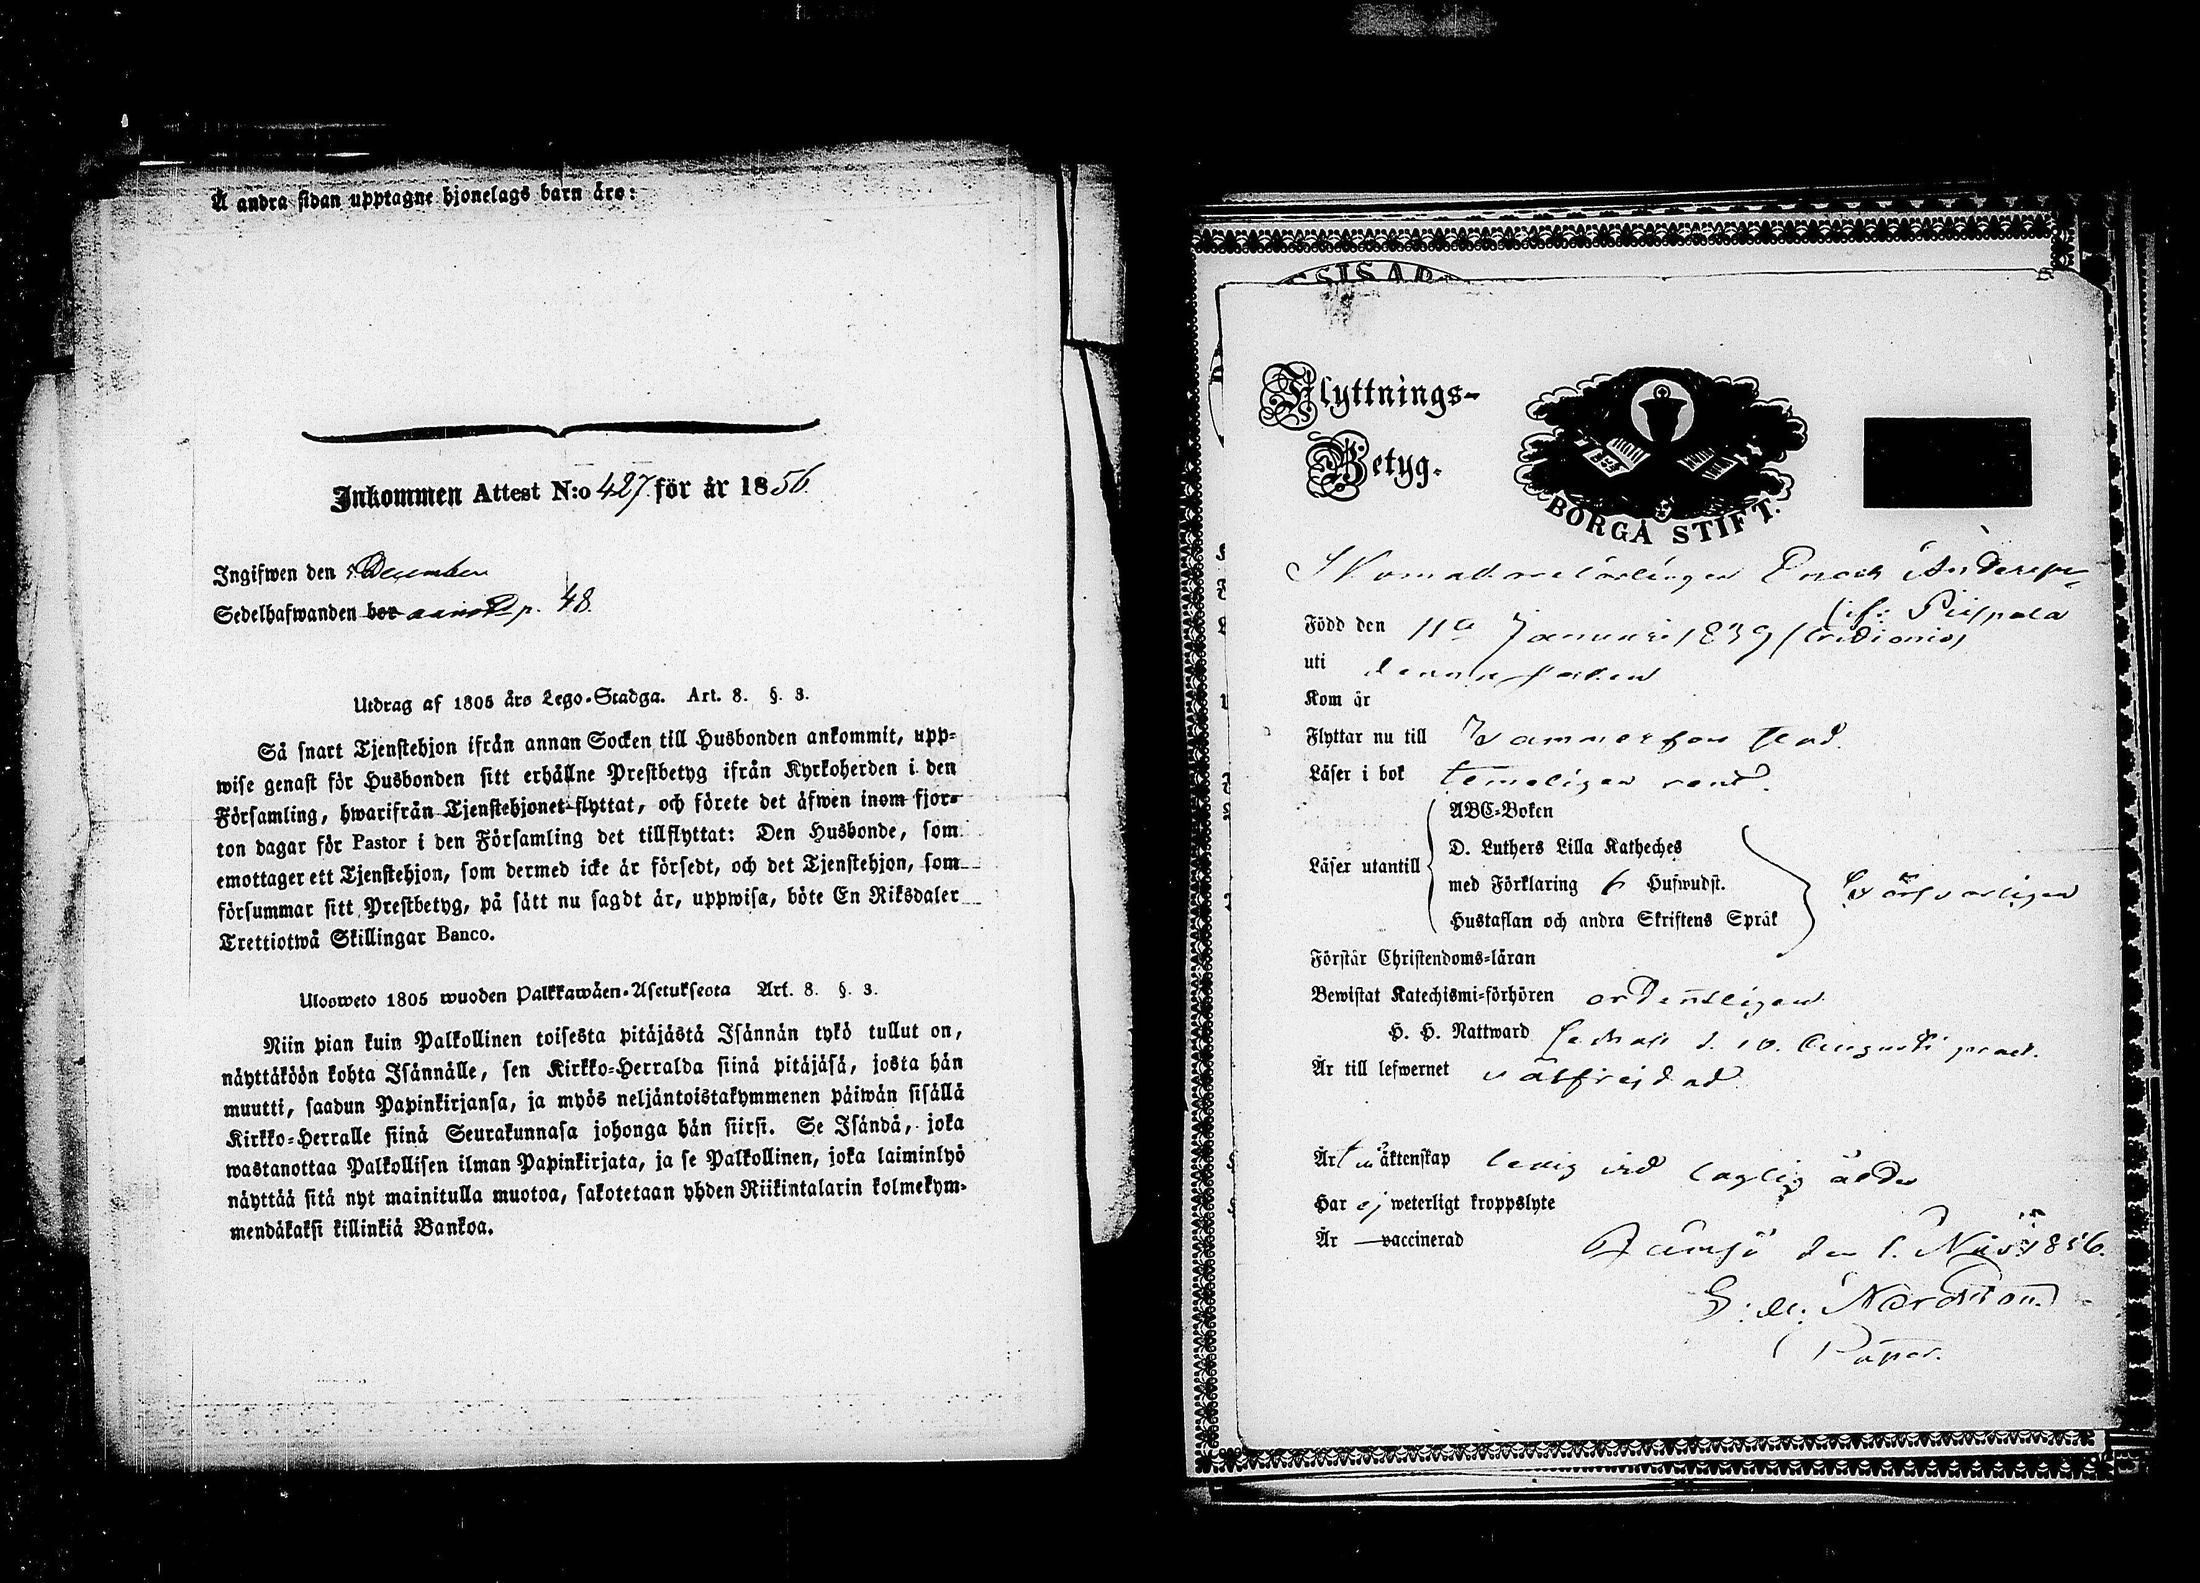 Å andra sidan upptagne hjonelags barn äro:
Inkommen Attest N:o 427. för år 1856.
Ingifwen den 5 December
Sedelhafwanden bor p. 48.
Utdrag af 1805 års Lego-Stadga. Art. 8. §. 3.
Så snart Tjenstehjon ifrån annan Socken till Husbonden ankommit, upp-
wise genast för Husbonden sitt erhållne Prestbetyg ifrån Kyrkoherden i den
Församling, hwarifrån Tjenstehjonet flyttat, och förete det äfwen inom fjor-
ton dagar för Pastor i den Församling det tillflyttat: Den Husbonde, som
emottager ett Tjenstehjon, som dermed icke är försedt, och det Tjenstehjon, som
försummar sitt Prestbetyg, på sätt nu sagdt är, uppwisa, böte En Riksdaler
Trettiotwå Skillingar Banco.
Ulosweto 1805 wuoden Palkkawäen-Asetuksesta Art. 8. §. 3.
Niin pian kuin Palkollinen toisesta pitäjästä Isännän tykö tullut on,
näyttäköön kohta Isännälle, sen Kirkko-Herralda siinä pitäjäsä, josta hän
muutti, saadun Papinkirjansa, ja myös neljäntoistakymmenen päiwän sisällä
Kirkko-Herralle siinä Seurakunnasa johonga hän siirsi. Se Isändä, joka
wastanottaa Palkollisen ilman Papinkirjata, ja se Palkollinen, joka laiminlyö
näyttää sitä nyt mainitulla muotoa, sakotetaan yhden Riikintalarin kolmekym-
mendäkaksi killinkiä Bankoa.
Flyttnings-
Betyg.
BORGÅ STIFT.
Skomakarelärlingen Enoch Anders
Piispala
Född den 11 Januari 1839
uti denna socken
Kom år
Flyttar nu till Tammerfors stad.
Läser i bok temeligen rent.
Läser utantill
ABC-Boken
D. Luthers Lilla Katheches
med Förklaring 6 Hufwudst.
Hustaflan och andra Skriftens Språk
försvarligen
Förstår Christendoms-läran
Bewistat Katechismi-förhören ordentligen
H. H. Nattward d. 10. Augusti
Är till lefwernet välfrejdad
Är t äktenskap ledig vid laglig ålder
Har ej weterligt kroppslyte
Är vaccinerad
Jämsä den 1. Nov. 1856.